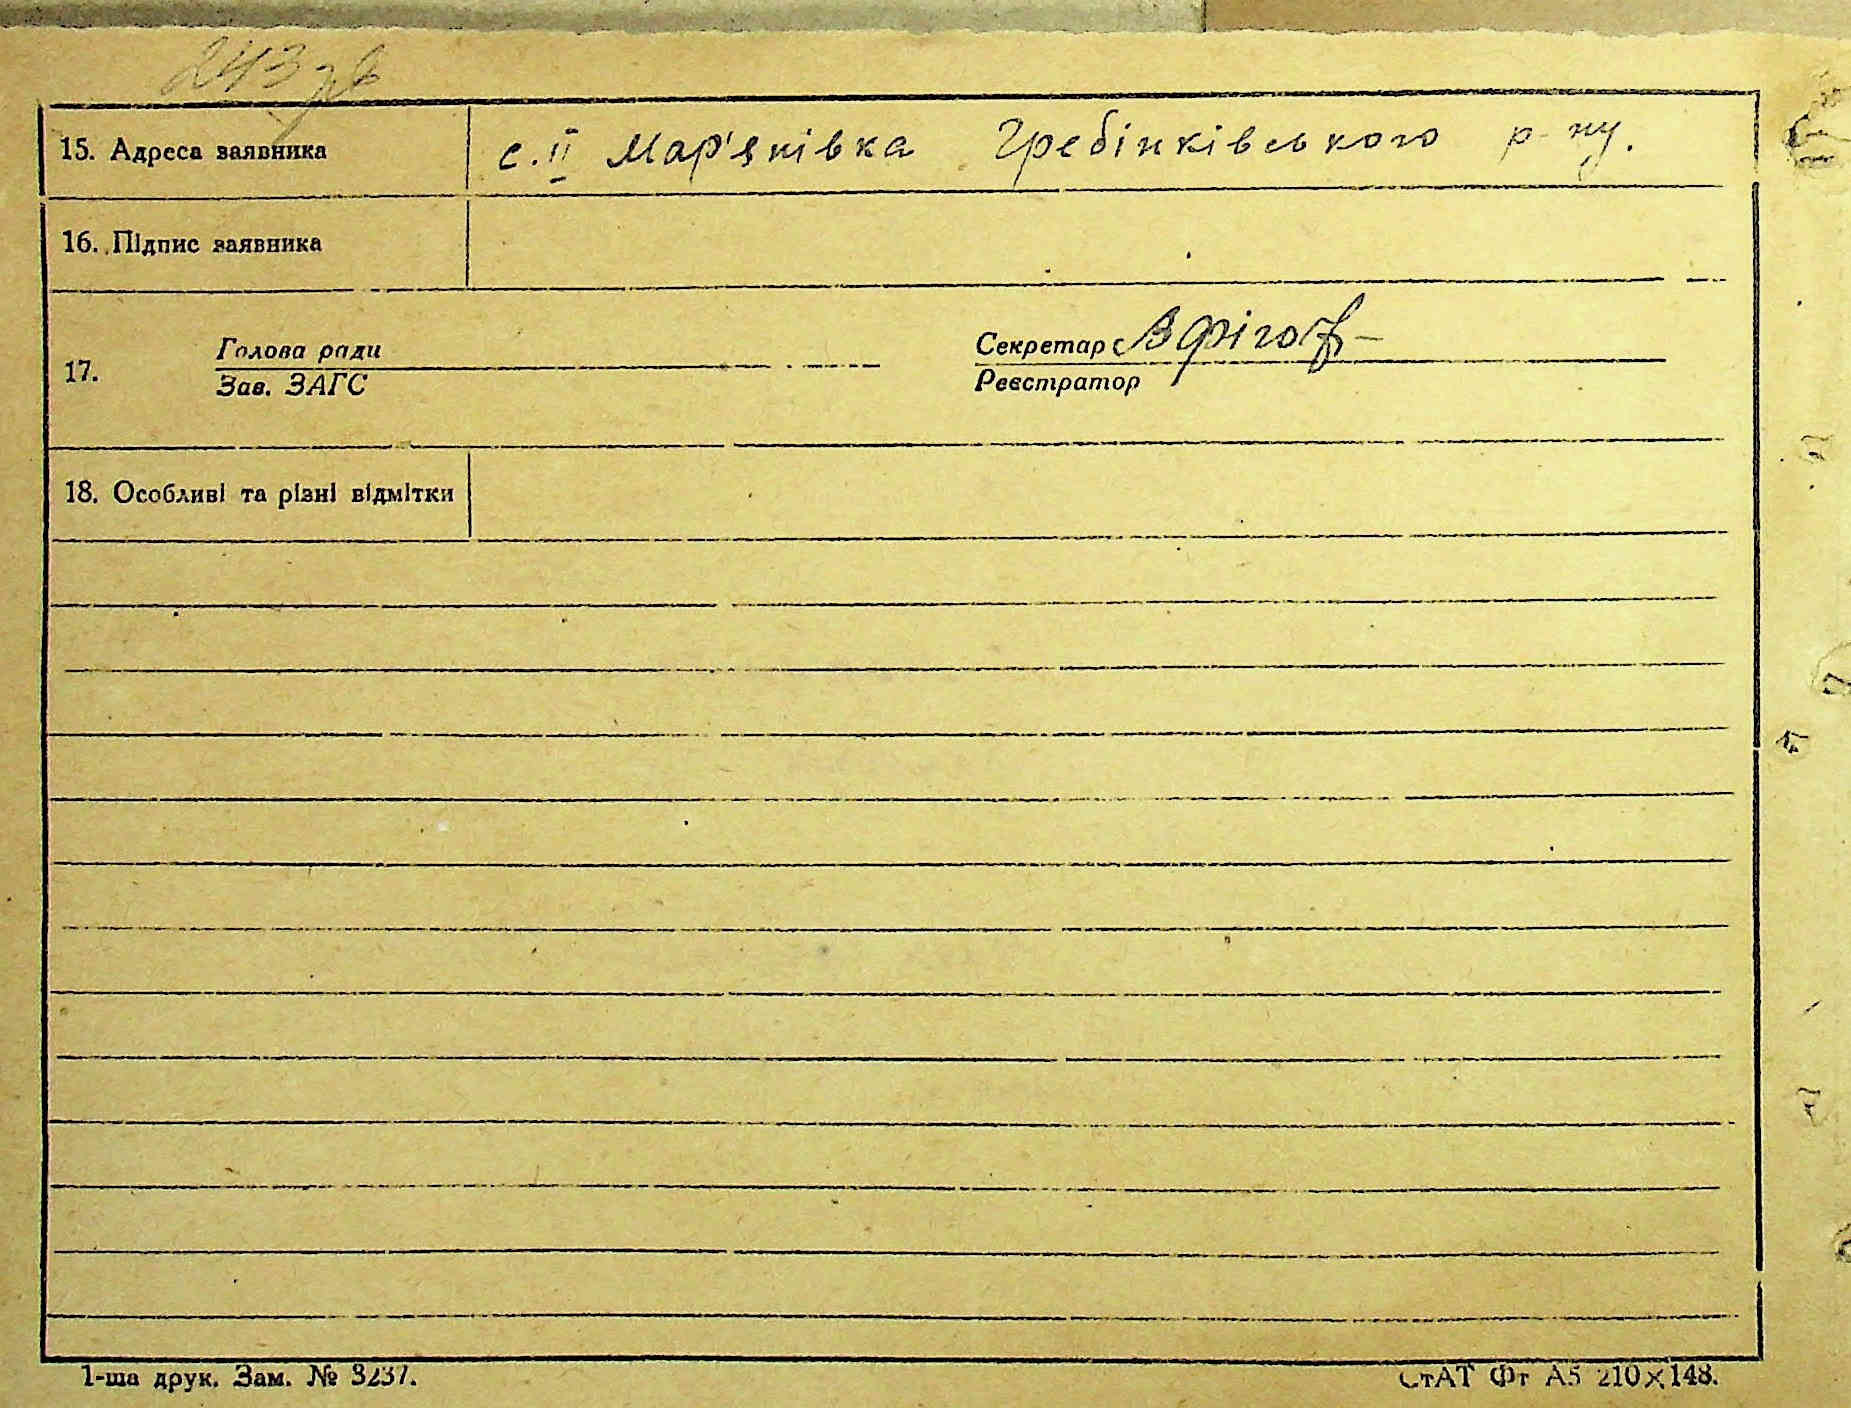 243 зв
15. Адреса заявника с. ІІ Мар'янівка Гребінківського р-ну.
16. Підпис заявника
Голова ради Секретар
17.
Зав. ЗАГС Реєстратор
18. Особливі та різні відмітки
1-ша друк. Зам. № 3237. СтАТ Фт А5 210×148.